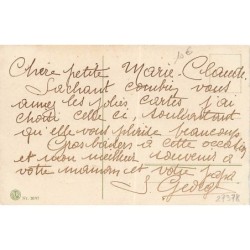 10€
Chère petite Marie-Claude
Sachant combien vous
aimez les jolies cartes j'ai
choisi celle ci, souhaitant
qu'elle vous plaise beaucoup
Gros baisers à cette occasion
et mon meilleur souvenir à
votre maman et votre papa
Georges